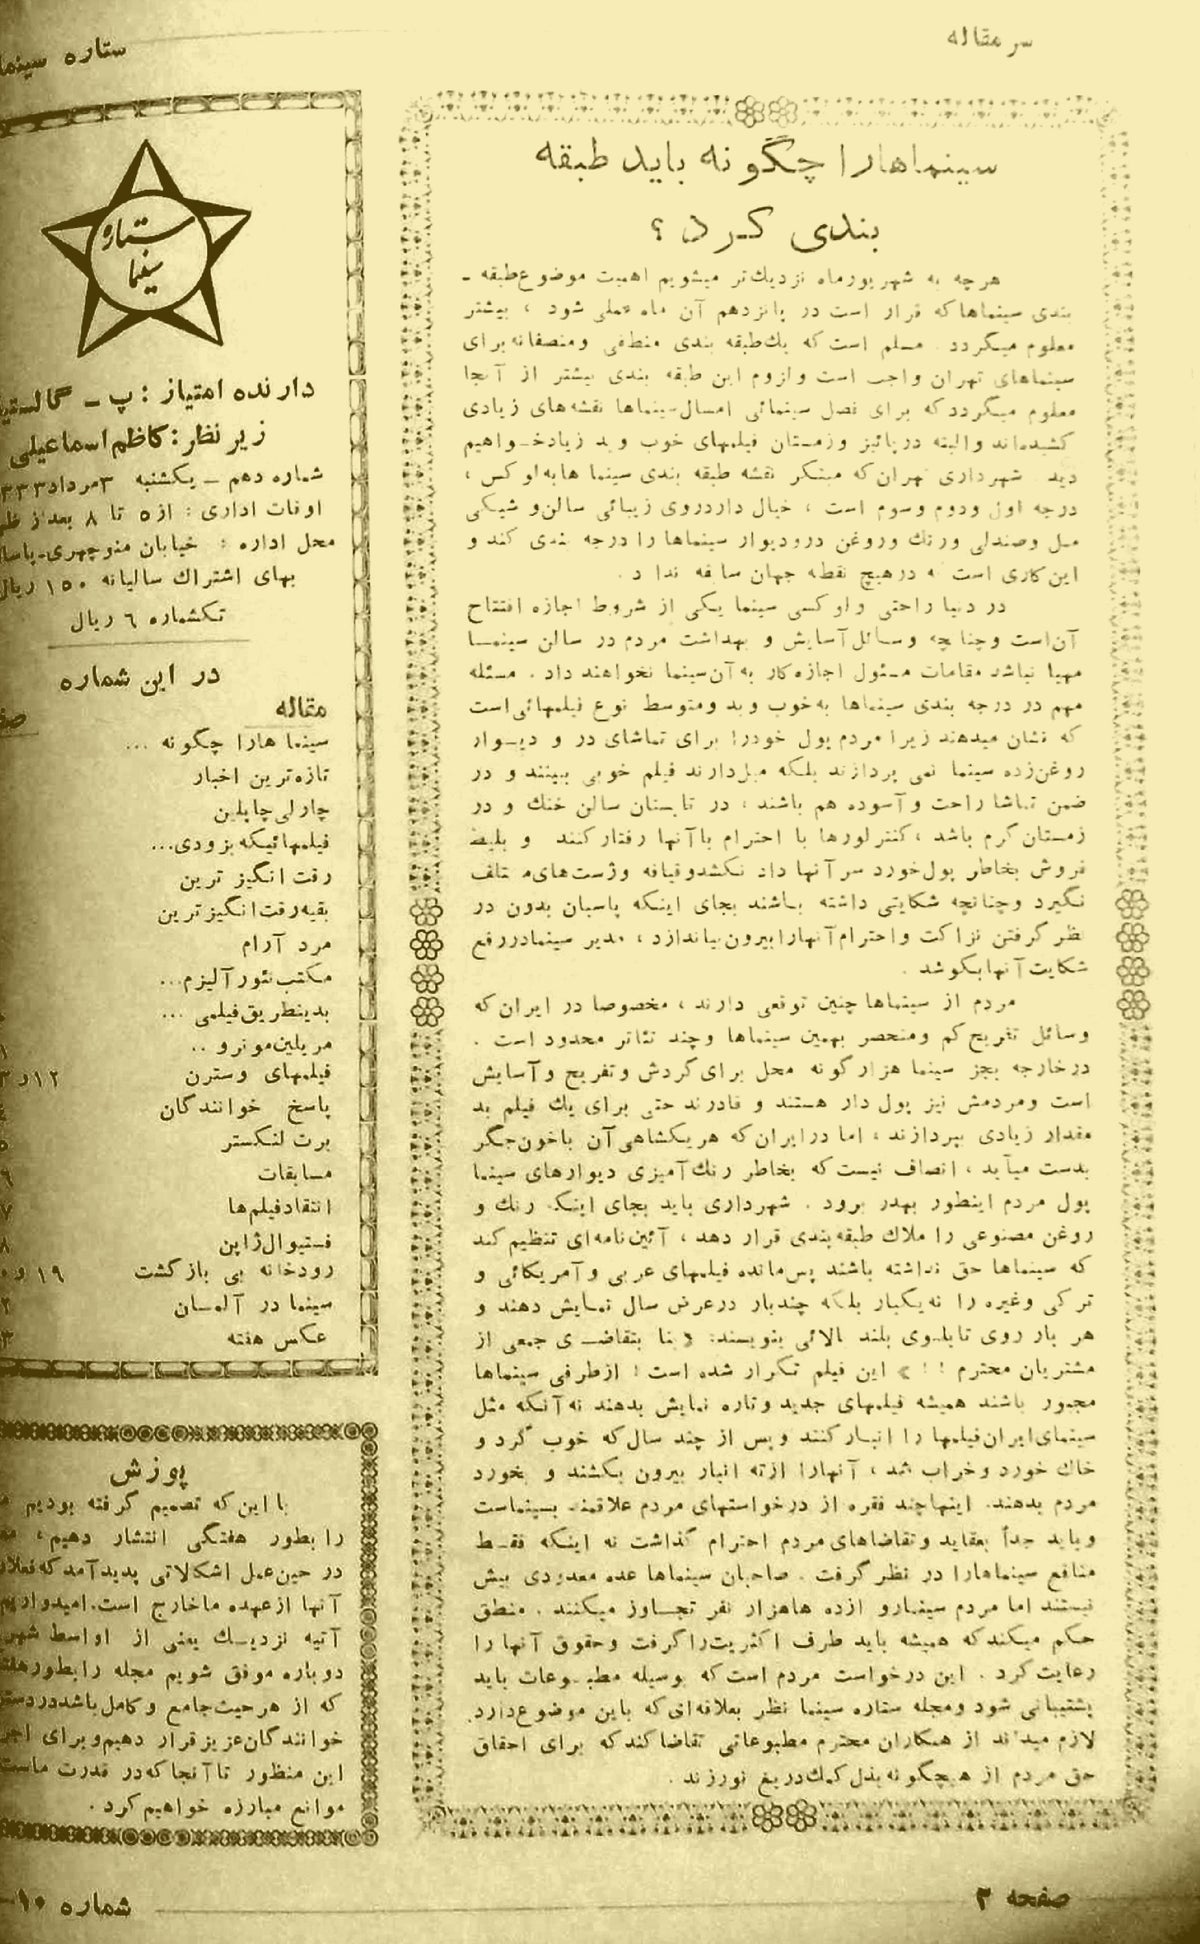 سر مقاله
سینماهارا چگونه باید طبقه
بندی کرد ؟
هرچه به شهریورماه نزدیك‌تر میشویم اهمیت موضوع طبقه ـ
بندی سینماها که قرار است در پانزدهم آن ماه عملی شود ، بیشتر
معلوم میگردد . مسلم است که یك طبقه بندی منطقی ومنصفانه برای
سینماهای تهران واجب است ولزوم این طبقه بندی بیشتر از آنجا
معلوم میگردد که برای فصل سینمائی امسال سینماها نقشه‌های زیادی
کشیده‌اند والبته درپائیز وزمستان فیلمهای خوب وبد زیاد خـواهیم
دید . شهرداری تهران که مبتکر نقشه طبقه بندی سینما هابه لوکس ،
درجه اول ودوم وسوم است ، خیال دارد روی زیبائی سالن و شیکی
مبل وصندلی ورنك وروغن درودیوار سینماها را درجه بندی کند و
این کاری است که درهیچ نقطه جهان سابقه ندارد .
در دنیا راحتی ولوکسی سینما یکی از شروط اجازه افتتاح
آن است وچنانچه وسائل آسایش و بهداشت مردم در سالن سینمـا
مهیا نباشد مقامات مسئول اجازه کار به آن سینما نخواهند داد . مسئله
مهم در درجه بندی سینماها به خوب وبد ومتوسط نوع فیلمهائی است
که نشان میدهند زیرا مردم پول خودرا برای تماشای در و دیـوار
روغن‌زده سینما نمی پردازند بلکه میل دارند فیلم خوبی ببینند و در
ضمن تماشا راحت و آسوده هم باشند ، در تابستان سالن خنك و در
زمستان گرم باشد ، کنترلورها با احترام باآنها رفتار کنند و بلیط
فروش بخاطر پول خورد سر آنها داد نکشد وقیافه وژست‌های مختلف
نگیرد وچنانچه شکایتی داشته باشند بجای اینکه پاسبان بدون در
نظر گرفتن نزاکت واحترام آنهارا بیرون بیاندازد ، مدیر سینما در رفع
شکایت آنها بکوشد .
مردم از سینماها چنین توقعی دارند ، مخصوصا در ایران که
وسائل تفریح کم ومنحصر بهمین سینماها وچند تئاتر محدود است .
درخارجه بجز سینما هزار گونه محل برای گردش وتفریح وآسایش
است ومردمش نیز پول دار هستند و قادرند حتی برای یك فیلم بد
مقدار زیادی بپردازند ، اما درایران که هریکشاهی آن باخون جگر
بدست میآید ، انصاف نیست که بخاطر رنك آمیزی دیوارهای سینما
پول مردم اینطور بهدر برود . شهرداری باید بجای اینکه رنك و
روغن مصنوعی را ملاك طبقه‌بندی قرار دهد ، آئین‌نامه‌ای تنظیم کند
که سینماها حق نداشته باشند پس‌مانده فیلمهای عربی وآمریکائی و
ترکی وغیره را نه یکبار بلکه چندبار درعرض سال نمایش دهند و
هر بار روی تابلوی بلند بالائی بنویسند: «بنا بتقاضـی جمعی از
مشتریان محترم ! ! » این فیلم تکرار شده است ! ازطرفی سینماها
مجبور باشند همیشه فیلمهای جدید وتازه نمایش بدهند نه آنکه مثل
سینمای ایران فیلمها را انبار کنند وپس از چند سال که خوب گرد و
خاك خورد وخراب شد ، آنهارا ازته انبار بیرون بکشند و بخورد
مردم بدهند. اینها چند فقره از درخواستهای مردم علاقمند بسینماست
وباید جداً بعقاید وتقاضاهای مردم احترام گذاشت نه اینکه فقـط
منافع سینماهارا در نظر گرفت . صاحبان سینماها عده معدودی بیش
نیستند اما مردم سینمارو ازده هاهزار نفر تجـاوز میکنند . منطق
حکم میکند که همیشه باید طرف اکثریت را گرفت وحقوق آنها را
رعایت کرد . این درخواست مردم است که بوسیله مطبوعات باید
پشتیبانی شود ومجله ستاره سینما نظر بعلاقه‌ای که باین موضوع دارد
لازم میداند از همکاران محترم مطبوعاتی تقاضا کند که برای احقاق
حق مردم از هیچگونه بذل کمك دریغ نورزند .
صفحه ۳
ستاره سینما
ستاره
سینما
دارنده امتیاز : پ ـ
زیر نظر : کاظم اسماعیلی
شماره دهم ـ یکشنبه ۳ مرداد ۱۳۳۳
اوقات اداری : از ۵ تا ۸ بعد از
محل اداره : خیابان منوچهری ـ
بهای اشتراك سالیانه ۱۵۰ ریال
تکشماره ۶ ریال
در این شماره
مقاله
سینما هارا چگونه ...
تازه‌ترین اخبار
چارلی چاپلین
فیلمهائیکه بزودی...
رقت انگیز ترین
بقیه رقت انگیزترین
مرد آرام
مکتب نئورآلیزم...
بدینطریق فیلمی ...
مریلین مونرو ..
فیلمهای وسترن ۱۲ و ۳
پاسخ خوانندگان
برت لنکستر
مسابقات
انتقاد فیلم‌ها ۷
فستیوال ژاپن ۸
رودخانه بی بازگشت ۱۹ و
سینما در آلمـان
عکس هفته
پوزش
با این که تصمیم گرفته بودیم
را بطور هفتگی انتشار دهیم ،
در حین عمل اشکالاتی پدید آمد که فعلا
آنها از عهده ما خارج است. امیدواریم
آتیه نزدیـك یعنی از اواسط
دوباره موفق شویم مجله را بطور
که از هر حیث جامع وکامل باشد در
خوانندگان عزیز قرار دهیم وبرای
این منظور تا آنجا که در قدرت ماست
موانع مبارزه خواهیم کرد .
شماره ۱۰